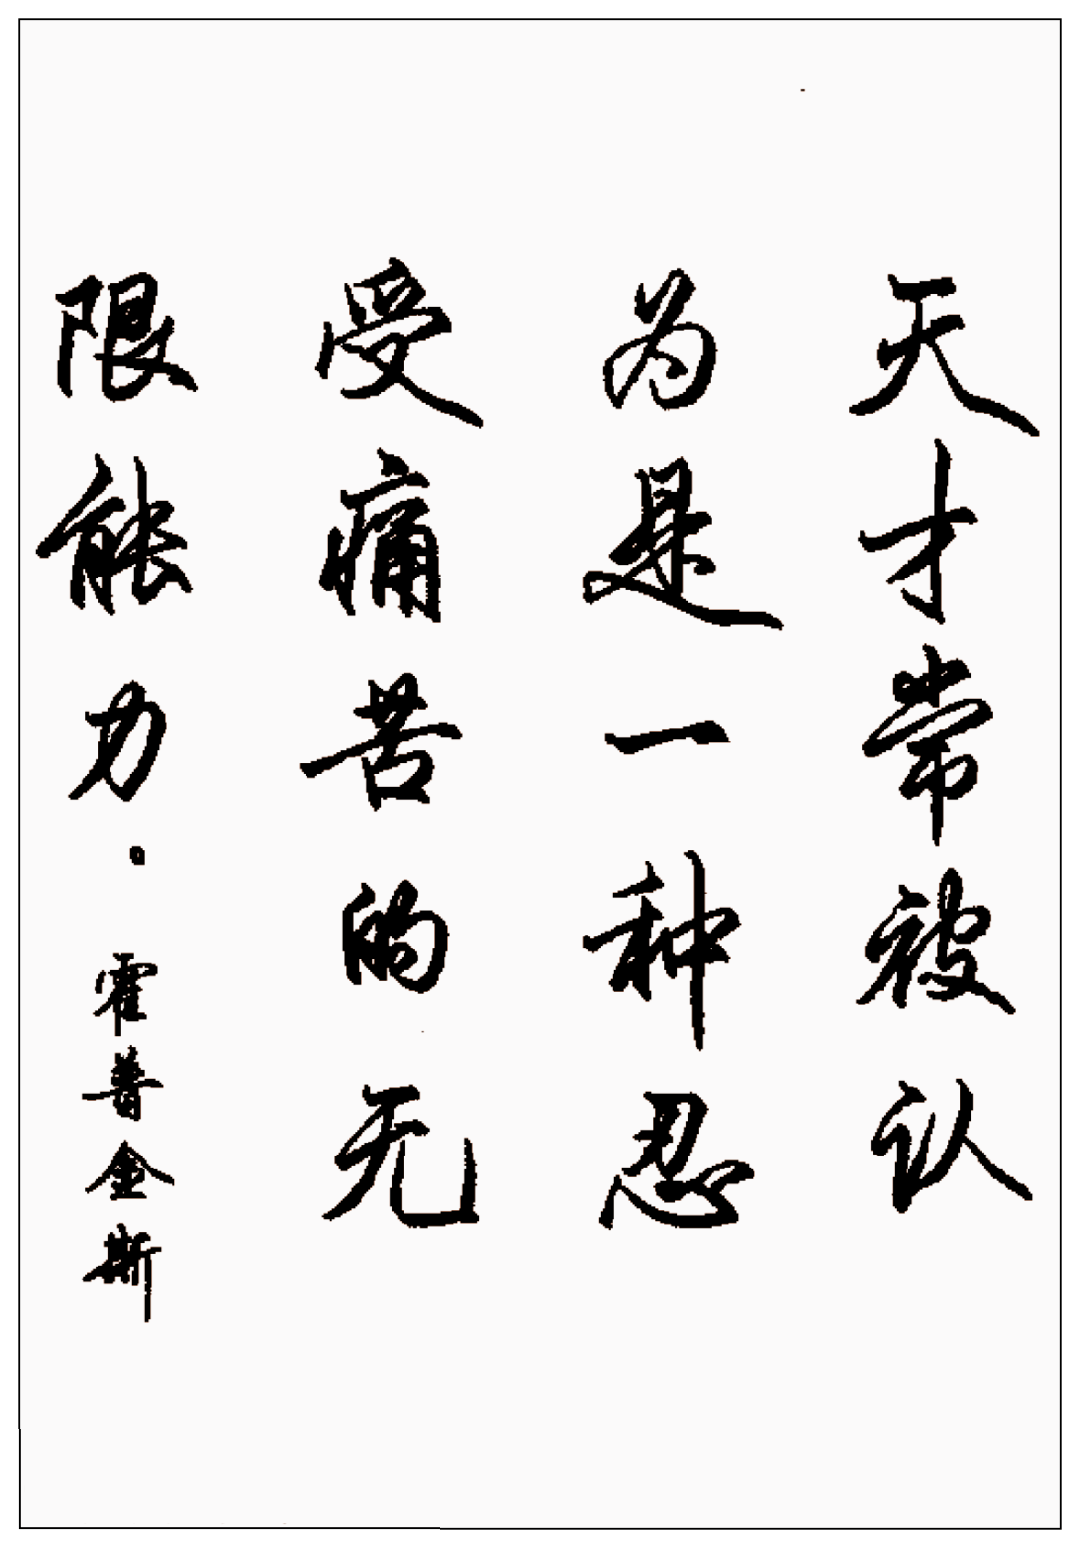 天才常被认
为是一种忍
受痛苦的无
限能力。霍普金斯